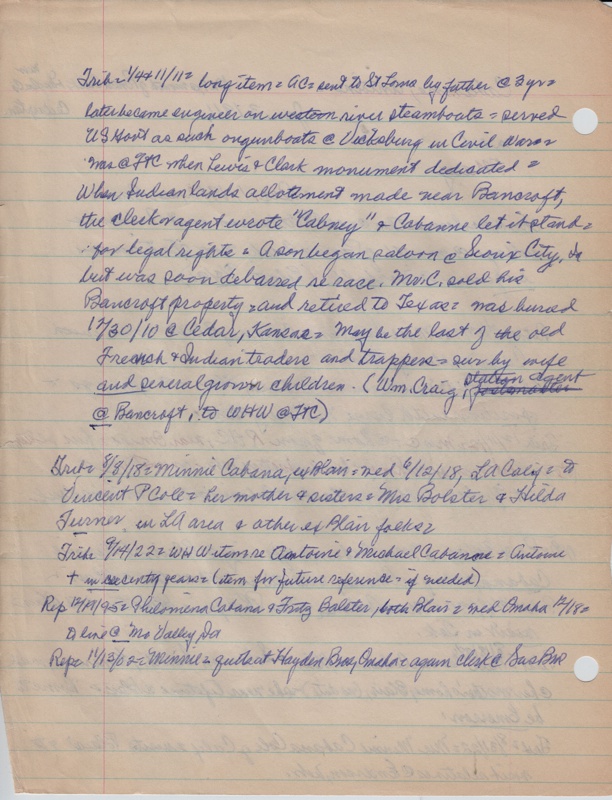 Trib= 1/4 & 11/11= long item= AC= sent to St Louis by father @ 3 yr=
later became engineer on western river steamboats = served
US Govt as such on gunboats @ Vicksburg in Civil War=
was @ FtC when Lewis & Clark monument dedicated =
When Indian lands allotement made near Bancroft,
the clerk or agent wrote "Cabney" & Cabanne let it stand=
for legal rights = A son began saloon @ Sioux City, Ia
but was soon debarred re race. Mr. C. sold his
Bancroft property = and retired to Texas = was buried
12/30/10 @ Cedar, Kansas = May be the last of the old
French & Indian traders and trappers = sur by wife
and several grown children. (Wm. Craig, station agent
@ Bancroft, to WHW @ FtC)
Trib= 8/8/18= Minnie Cabana, ex Blair = wed 6/12/18, LA Calif = to
Vincent P Cole = her mother & sisters = Mrs Bolster & Hilda
Turner in LA area & other ex Blair folks=
Trib= 9/14/22= WHW item re Antoine & Michael Cabanne = Antoine
+ in recent years = (item for future reference = if needed)
Rep 12/19/95= Philomena Cabana & Fritz Balster, both Blair = wed Omaha 12/18=
to live @ Mo Valley, Ia
Rep= 11/13/02= Minnie = quits at Hayden Bros, Omaha = again clerk @ Sas Bro